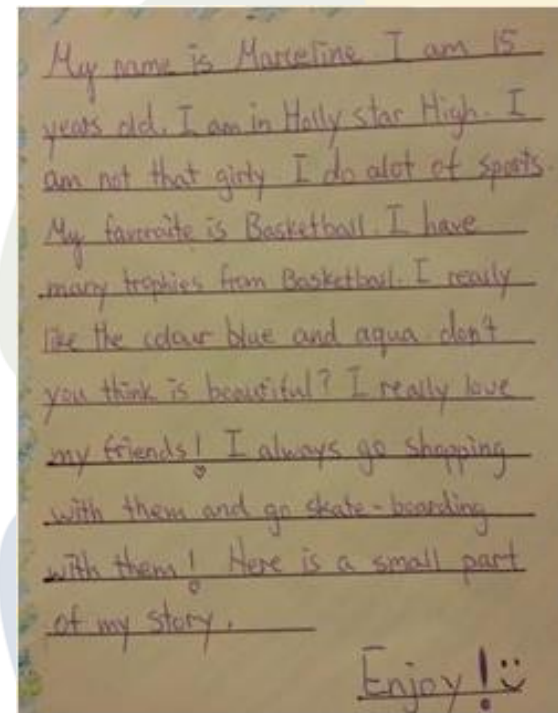 My name is Marceline. I am 15
years old. I am in Holly star High. I
am not that girly I do alot of sports.
My favoraite is Basketball. I have
many trophies from Basketball. I really
like the colour blue and aqua don't
you think is beautiful? I really love
my friends! I always go shopping
with them and go skate-boarding
with them! Here is a small part
of my story.
Enjoy!